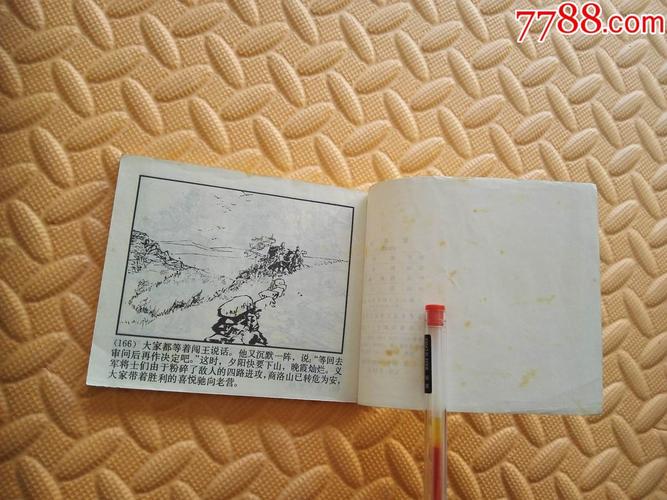 7788.com
(166) 大家都等着闯王说话。他又沉默一阵，说：“等回去
审问后再作决定吧。”这时，夕阳快要下山，晚霞灿烂。义
军将士们由于粉碎了敌人的四路进攻，商洛山已转危为安，
大家带着胜利的喜悦驰向老营。